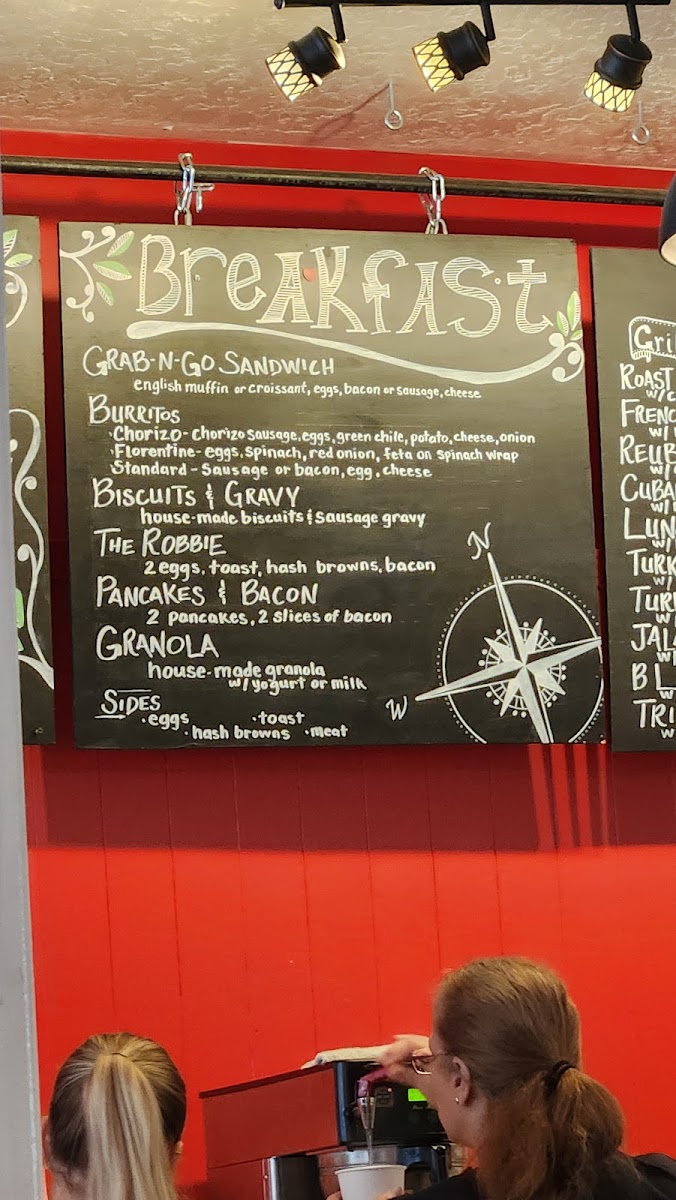 BreAKfAST
GRAB-N-GO SANDWICH
english muffin or croissant, eggs, bacon or sausage, cheese
BURRITOS
·Chorizo- chorizo sausage, eggs, green chile, potato, cheese, onion
·Florentine- eggs, spinach, red onion, feta on spinach wrap
·Standard - Sausage or bacon, egg, cheese
BISCUITS & GRAVY
house-made biscuits & sausage gravy
THE ROBBIE
2 eggs, toast, hash browns, bacon
PANCAKES & BACON
2 pancakes, 2 slices of bacon
GRANOLA
house-made granola
w/yogurt or milk
SIDES
·eggs ·toast
·hash browns ·meat
N
W
Gri
ROAST
W/C
FRENC
W/
REUB
W/
CUBA
W/
LUN
W/
TURK
W/
TUR
W/
JAL
W
BL
W
TRI
W